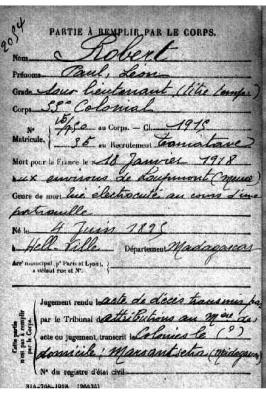 2034
PARTIE À REMPLIR PAR LE CORPS.
Nom Robert
Prénoms Paul, Léon
Grade Sous lieutenant (titre temp.)
Corps 55e Colonial
N° au Corps. — Cl. 1915
Matricule. 36 au Recrutement Tamatave
Mort pour la France le 18 Janvier 1918
aux environs de (Meuse)
Genre de mort Tué électrocuté au cours d'une
patrouille
Né le 4 Juin 1895
à Hell-Ville Département Madagascar
Arrt municipal (pr Paris et Lyon),
à défaut rue et N°.
Cette partie
n'est pas à remplir
par le Corps.
Jugement rendu le acte de décès transmis par
par le Tribunal attributions au Mtre des
acte ou jugement, transcrit le Colonies le (?)
domicile: (Madagascar)
N° du registre d'état civil